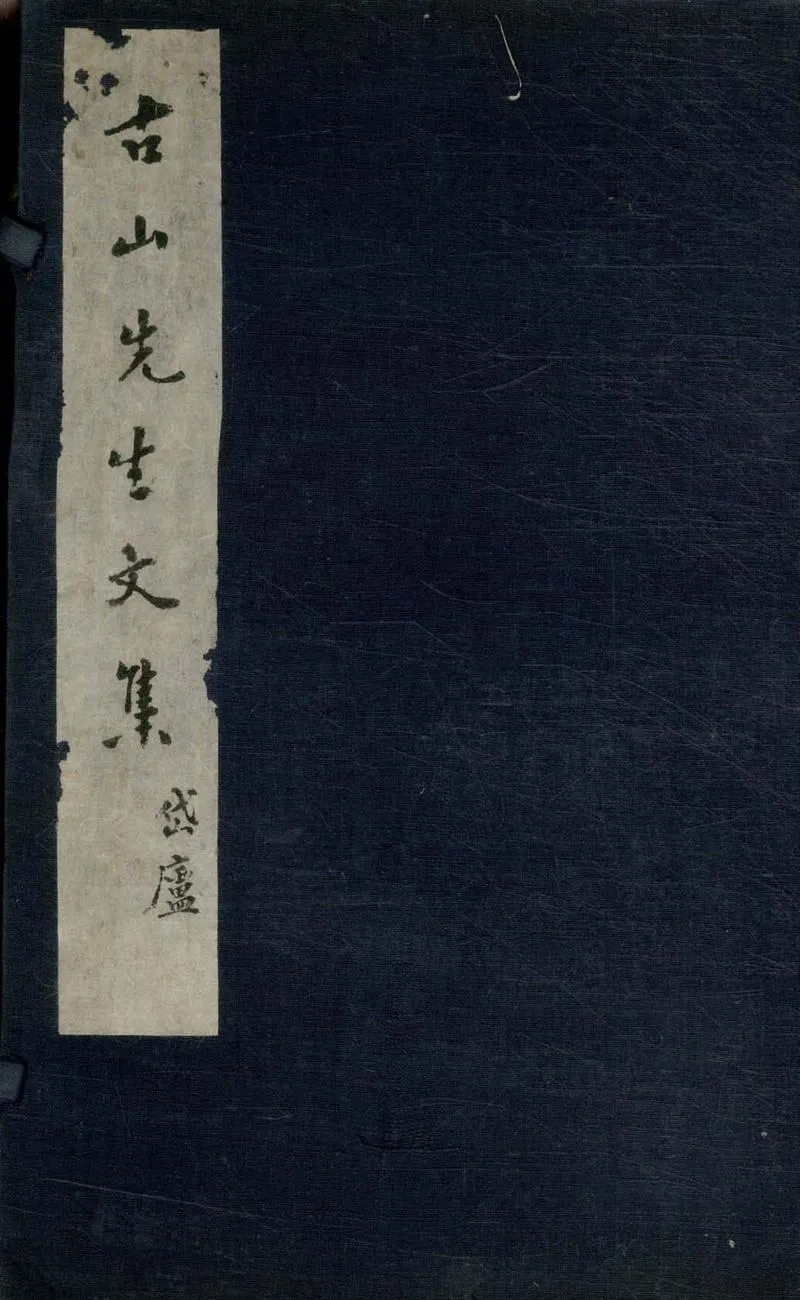 古山先生文集
岱廬